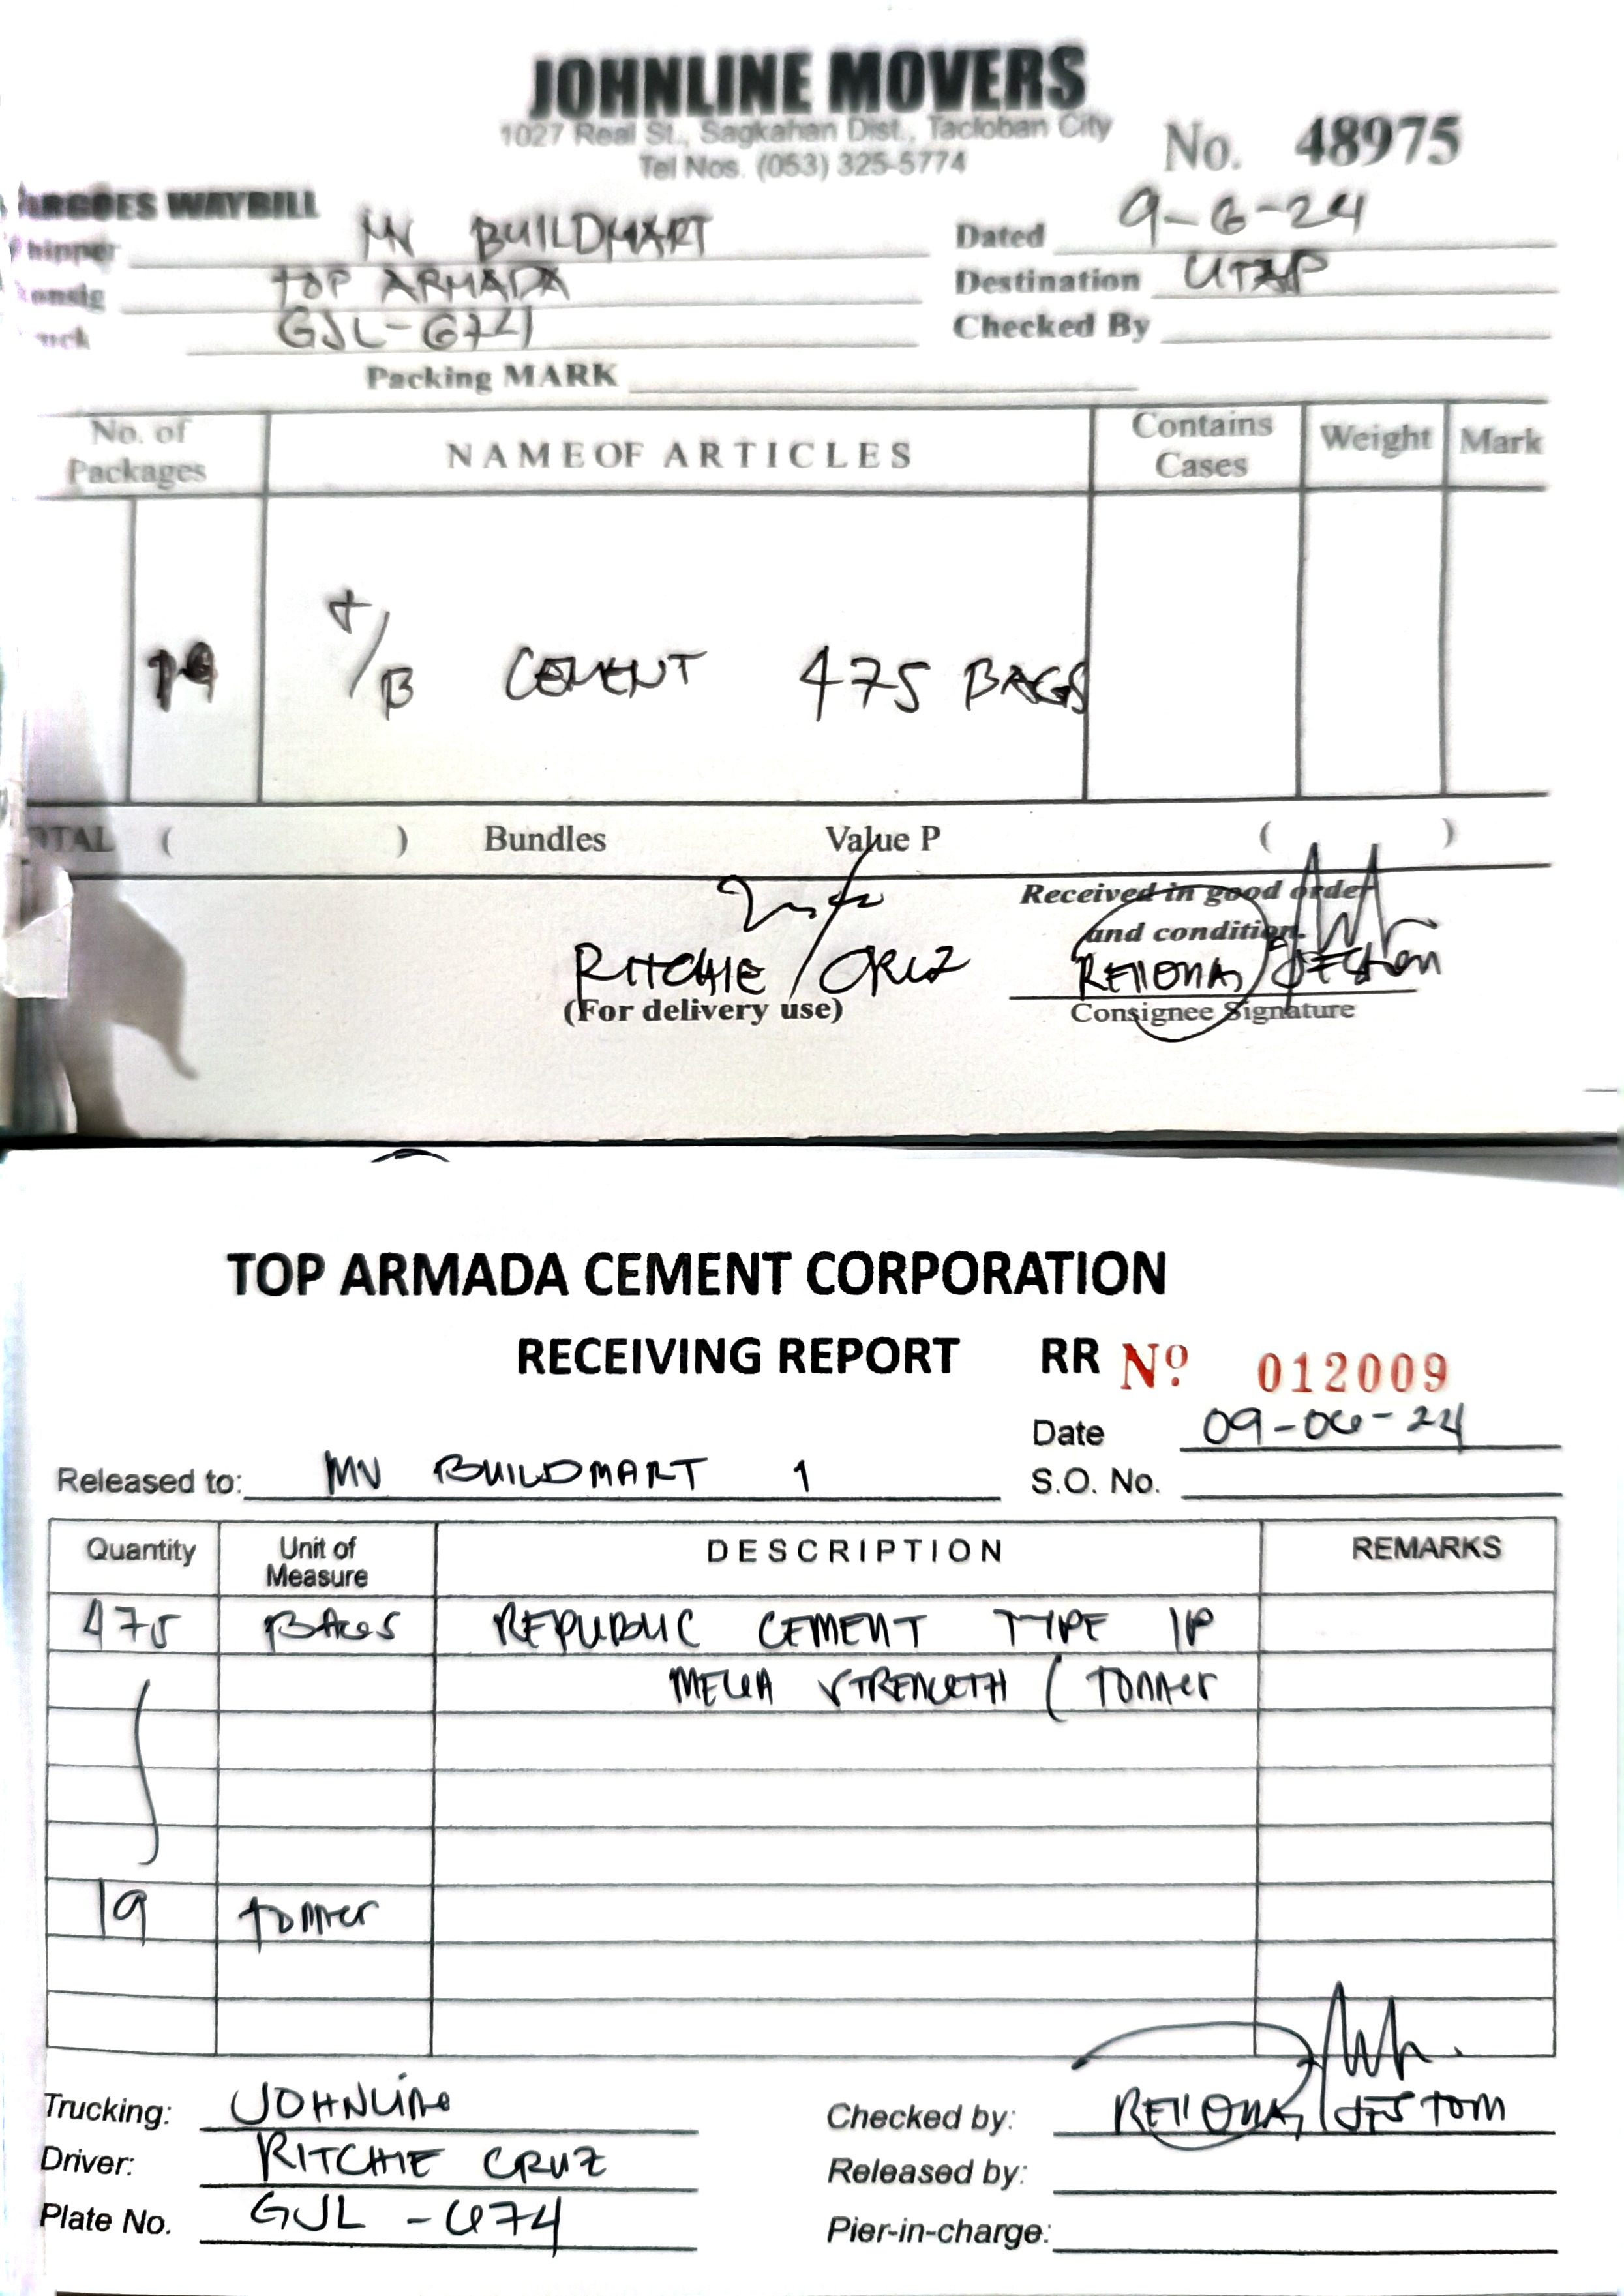 JOHNLINE MOVERS
1027 Real St., Sagkahan Dist., Tacloban City
Tel Nos. (053) 325-5774
No. 48975
ARGOES WAYBILL
hipper MV BUILDMART
Dated 9-6-24
onsig TOP ARMADA
Destination UTAP
uck GJL-674
Checked By
Packing MARK
No. of Packages NAME OF ARTICLES Contains Cases Weight Mark
19 T/B CEMENT 475 BAGS
OTAL ( ) Bundles Value P ( )
Received in good order
and condition.
RITCHIE CRUZ
(For delivery use)
Consignee Signature
TOP ARMADA CEMENT CORPORATION
RECEIVING REPORT RR Nº 012009
Date 09-06-24
Released to: MV BUILDMART 1
S.O. No.
Quantity Unit of Measure DESCRIPTION REMARKS
475 BAGS REPUBLIC CEMENT TYPE 1P
MEGA STRENGTH ( TONNER
19 TONNER
Trucking: JOHNLINE
Checked by:
Driver: RITCHIE CRUZ
Released by:
Plate No. GJL - 674
Pier-in-charge: